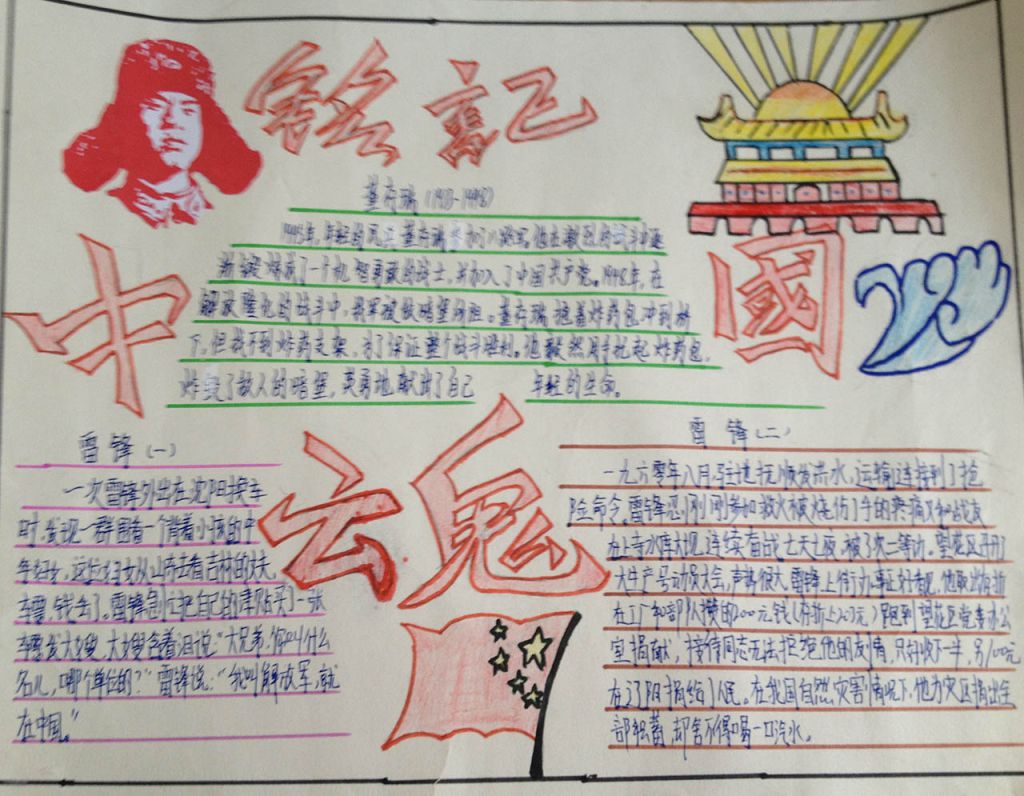 铭記
中國
云鬼
董存瑞(1929-1948)
1945年,年轻的民兵董存瑞参加了八路军,他在激烈的战斗中逐
渐锻炼成了一个机智勇敢的战士,并加入了中国共产党。1948年,在
解放隆化的战斗中,我军被敌暗堡所阻。董存瑞抱着炸药包冲到桥
下,但找不到炸药支架,为了保证整个战斗胜利。他毅然用手托起炸药包,
炸毁了敌人的暗堡,英勇地献出了自己年轻的生命。
雷锋(一)
一次雷锋外出在沈阳换车
时,发现一群围着一个背着小孩的中
年妇女,这位妇女从山东去看吉林的丈夫,
车票,钱丢了。雷锋急忙把自己的津贴买了一张
车票我大嫂,大嫂含着泪说:“大兄弟,你叫什么
名儿,哪个单位的?”雷锋说:“我叫解放军,就
在中国。”
雷锋(二)
一九六零年八月,驻地抚顺发洪水,运输连接到了抢
险命令。雷锋忍刚刚参加救火被烧伤了手的疼痛又和战友
在上寺水库大坝连续奋战七天七夜,被了次二等功。望花区开
大生产号动员大会,声势很大,雷锋上街办事正好看见,他取出存折
在工厂和部队攒的200元钱(存折上203元)跑到望花区党委办公
室捐献,接待同志无法拒绝他的友情,只好收下一半,另100元
在辽阳捐给了人民。在我国自然灾害情况下,他为灾区捐出全
部积蓄,却舍不得喝一口汽水。